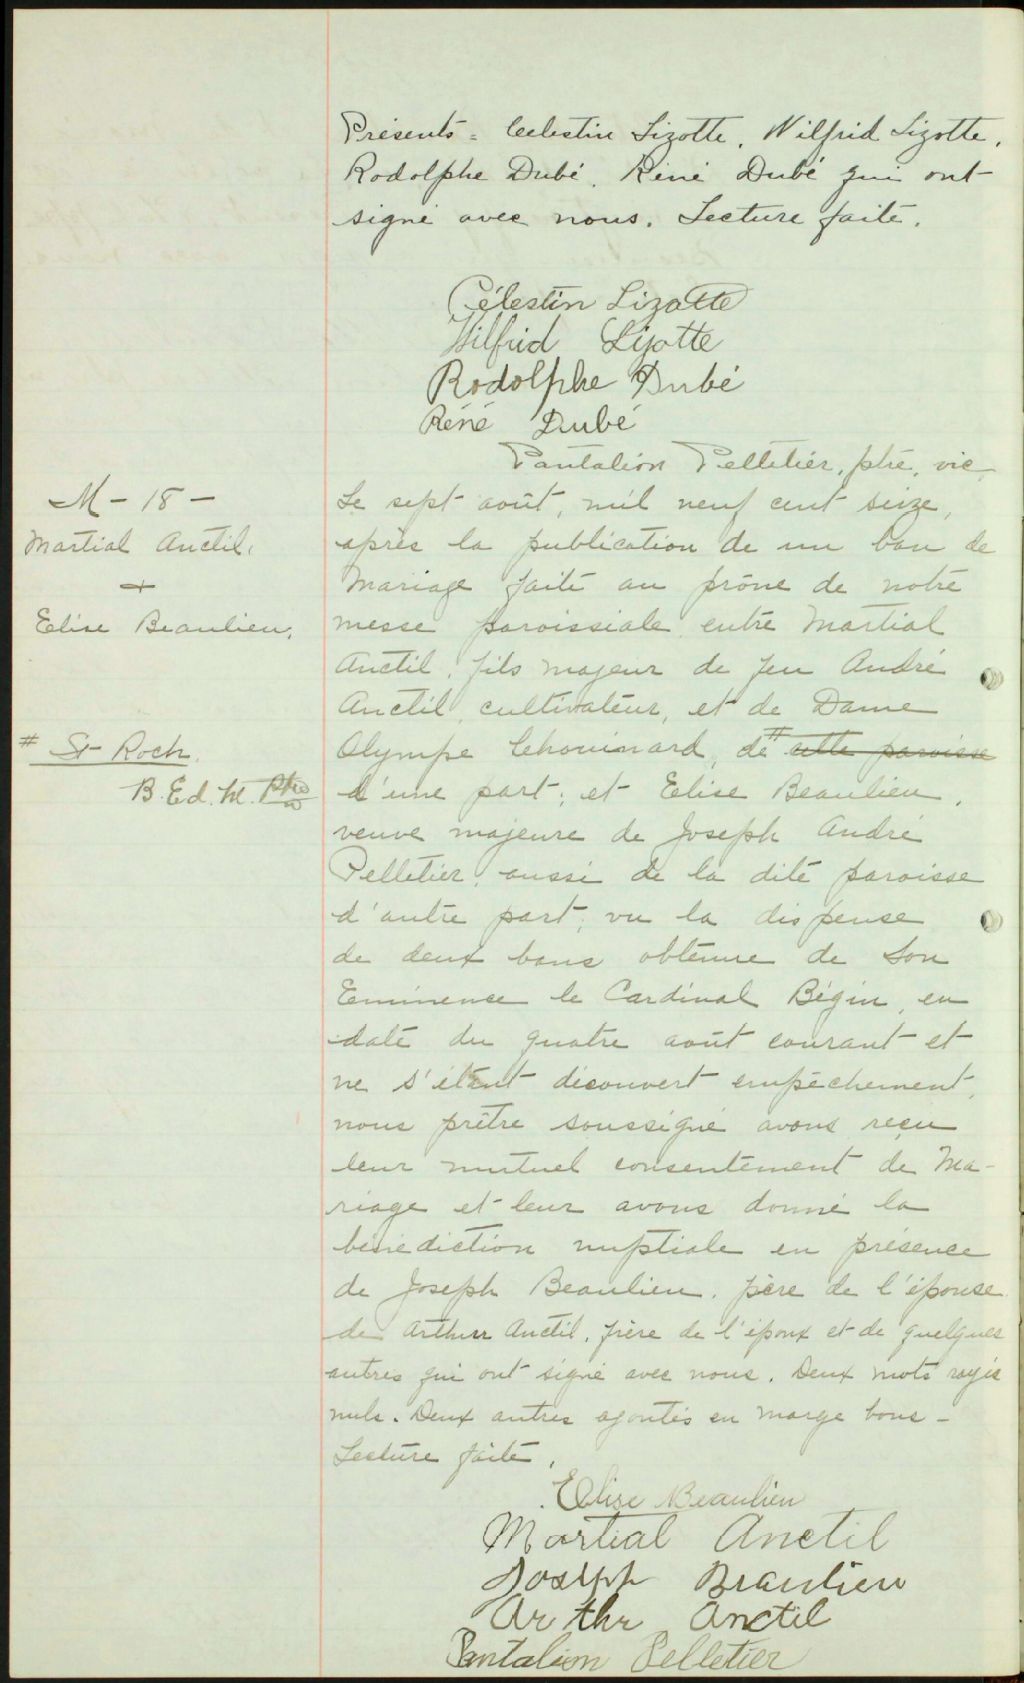 Présents = Celestin Lizotte, Wilfrid Lizotte,
Rodolphe Dubé, Réné Dubé qui ont
signé avec nous. Lecture faite.
Célestin Lizotte
Wilfrid Lizotte
Rodolphe Dubé
Réné Dubé
Pantaléon Pelletier, ptre, vic.
M - 18 -
Martial Anctil.
+
Elise Beaulieu.
# St-Roch.
B. Ed. M. Ptre
Le sept août, mil neuf cent seize,
après la publication de un ban de
Mariage faite au prône de notre
messe paroissiale entre Martial
Anctil, fils majeur de feu André
Anctil, cultivateur, et de Dame
Olympe Chouinard, de # cette paroisse
d'une part; et Elise Beaulieu,
veuve majeure de Joseph André
Pelletier, aussi de la dite paroisse
d'autre part; vu la dispense
de deux bans obtenue de Son
Eminence le Cardinal Bégin, en
date du quatre août courant et
ne s'étant découvert empêchement,
nous prêtre soussigné avons reçu
leur mutuel consentement de Ma-
riage et leur avons donné la
bénédiction nuptiale en présence
de Joseph Beaulieu, père de l'épouse
de Arthur Anctil, frère de l'époux et de quelques
autres qui ont signé avec nous. Deux mots rayés
nuls. Deux autres ajoutés en marge bons -
Lecture faite.
Elise Beaulieu
Martial Anctil
Joseph Beaulieu
Arthr Anctil
Pantaléon Pelletier